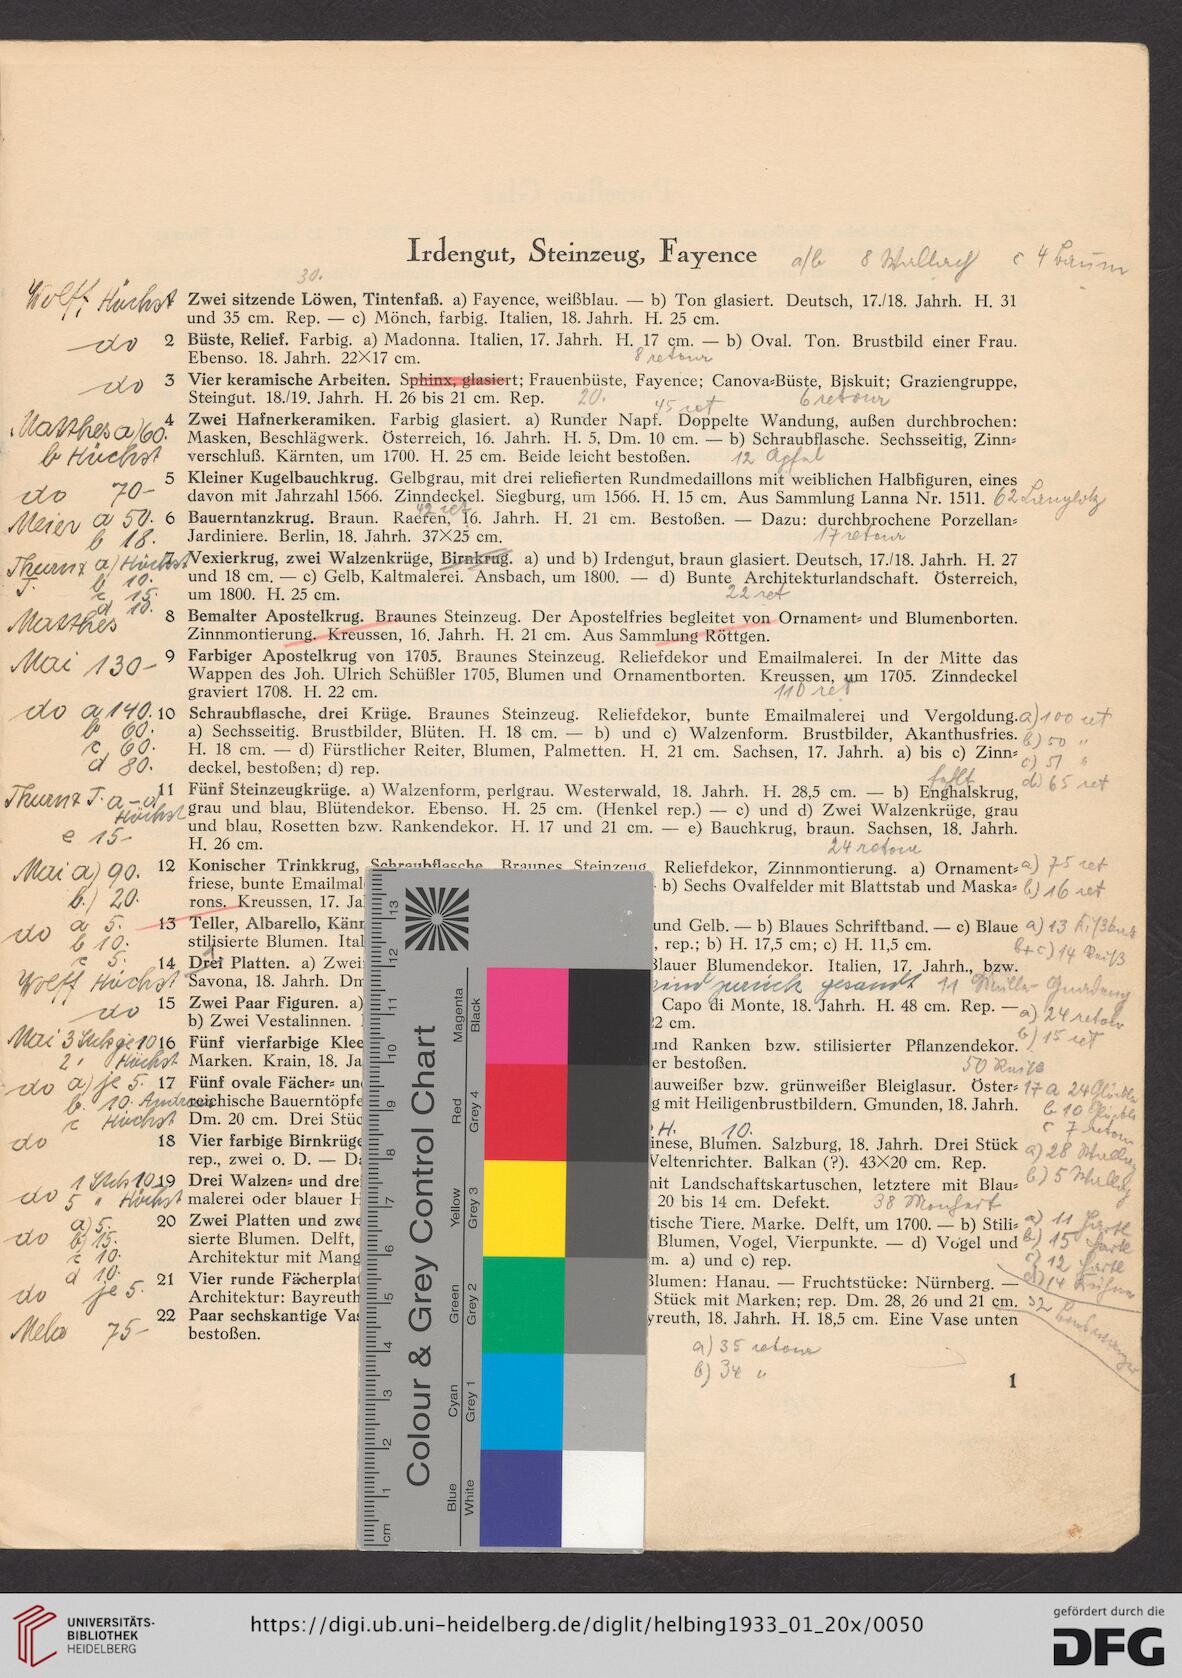 Irdengut, Steinzeug, Fayence
a/b 8 c 4 Baum
30.
Wolff Höchst Zwei sitzende Löwen, Tintenfaß. a) Fayence, weißblau. — b) Ton glasiert. Deutsch, 17./18. Jahrh. H. 31
und 35 cm. Rep. — c) Mönch, farbig. Italien, 18. Jahrh. H. 25 cm.
do 2 Büste, Relief. Farbig. a) Madonna. Italien, 17. Jahrh. H. 17 cm. — b) Oval. Ton. Brustbild einer Frau.
Ebenso. 18. Jahrh. 22×17 cm. 8 retour
do 3 Vier keramische Arbeiten. Sphinx, glasiert; Frauenbüste, Fayence; Canova-Büste, Biskuit; Graziengruppe,
Steingut. 18./19. Jahrh. H. 26 bis 21 cm. Rep. 20. 45 ret 6 retour
Matthes a) 60. 4 Zwei Hafnerkeramiken. Farbig glasiert. a) Runder Napf. Doppelte Wandung, außen durchbrochen:
Masken, Beschlägwerk. Österreich, 16. Jahrh. H. 5, Dm. 10 cm. — b) Schraubflasche. Sechsseitig, Zinn-
b Höchst verschluß. Kärnten, um 1700. H. 25 cm. Beide leicht bestoßen. 12
do 70- 5 Kleiner Kugelbauchkrug. Gelbgrau, mit drei reliefierten Rundmedaillons mit weiblichen Halbfiguren, eines
davon mit Jahrzahl 1566. Zinndeckel. Siegburg, um 1566. H. 15 cm. Aus Sammlung Lanna Nr. 1511. 62
42 ret
Meier a 50. 6 Bauerntanzkrug. Braun. Raeren, 16. Jahrh. H. 21 cm. Bestoßen. — Dazu: durchbrochene Porzellan-
b 18. Jardiniere. Berlin, 18. Jahrh. 37×25 cm. 17 retour
Thurn T. a) Höchst 7 Vexierkrug, zwei Walzenkrüge, Birnkrug. a) und b) Irdengut, braun glasiert. Deutsch, 17./18. Jahrh. H. 27
b 10. und 18 cm. — c) Gelb, Kaltmalerei. Ansbach, um 1800. — d) Bunte Architekturlandschaft. Österreich,
c 15. um 1800. H. 25 cm. 22 ret
d 10.
Matthes 8 Bemalter Apostelkrug. Braunes Steinzeug. Der Apostelfries begleitet von Ornament- und Blumenborten.
Zinnmontierung. Kreussen, 16. Jahrh. H. 21 cm. Aus Sammlung Röttgen.
Mai 130- 9 Farbiger Apostelkrug von 1705. Braunes Steinzeug. Reliefdekor und Emailmalerei. In der Mitte das
Wappen des Joh. Ulrich Schüßler 1705, Blumen und Ornamentborten. Kreussen, um 1705. Zinndeckel
graviert 1708. H. 22 cm. 110 ret
do a 140. 10 Schraubflasche, drei Krüge. Braunes Steinzeug. Reliefdekor, bunte Emailmalerei und Vergoldung. a) 100 ret
b 60. a) Sechsseitig. Brustbilder, Blüten. H. 18 cm. — b) und c) Walzenform. Brustbilder, Akanthusfries. b) 50 "
c 60. H. 18 cm. — d) Fürstlicher Reiter, Blumen, Palmetten. H. 21 cm. Sachsen, 17. Jahrh. a) bis c) Zinn- c) 51 "
d 80. deckel, bestoßen; d) rep. fehlt d) 65 ret
Thurn T. a-d Höchst 11 Fünf Steinzeugkrüge. a) Walzenform, perlgrau. Westerwald, 18. Jahrh. H. 28,5 cm. — b) Enghalskrug,
grau und blau, Blütendekor. Ebenso. H. 25 cm. (Henkel rep.) — c) und d) Zwei Walzenkrüge, grau
e 15- und blau, Rosetten bzw. Rankendekor. H. 17 und 21 cm. — e) Bauchkrug, braun. Sachsen, 18. Jahrh.
H. 26 cm. 24 retour
Mai a) 90. 12 Konischer Trinkkrug, Schraubflasche. Braunes Steinzeug. Reliefdekor, Zinnmontierung. a) Ornament- a) 75 ret
b.) 20. friese, bunte Emailmal b) Sechs Ovalfelder mit Blattstab und Maska- b) 16 ret
rons. Kreussen, 17. Ja
do a 5. 13 Teller, Albarello, Känn und Gelb. — b) Blaues Schriftband. — c) Blaue a) 13
b 10. stilisierte Blumen. Ital , rep.; b) H. 17,5 cm; c) H. 11,5 cm. b+c) 14
c 5. 14 Drei Platten. a) Zwei Blauer Blumendekor. Italien, 17. Jahrh., bzw.
Wolff Höchst Savona, 18. Jahrh. Dm sind zurück gesandt 11
do 15 Zwei Paar Figuren. a) Capo di Monte, 18. Jahrh. H. 48 cm. Rep. — a) 24 retour
b) Zwei Vestalinnen. 22 cm. b) 15 ret
Mai 3 Stck je 10 16 Fünf vierfarbige Klee und Ranken bzw. stilisierter Pflanzendekor.
2 " Höchst Marken. Krain, 18. Ja er bestoßen. 50
do a) je 5. 17 Fünf ovale Fächer- un lauweißer bzw. grünweißer Bleiglasur. Öster- 17 a 24
b. 10. reichische Bauerntöpfe g mit Heiligenbrustbildern. Gmunden, 18. Jahrh. b 10
c Höchst Dm. 20 cm. Drei Stüc H. 10. c 7 retour
do 18 Vier farbige Birnkrüge inese, Blumen. Salzburg, 18. Jahrh. Drei Stück a) 28
rep., zwei o. D. — Da Weltenrichter. Balkan (?). 43×20 cm. Rep. b) 5
1 Stck 10 19 Drei Walzen- und drei mit Landschaftskartuschen, letztere mit Blau-
do 5 " Höchst malerei oder blauer H 20 bis 14 cm. Defekt. 38
a) 5. 20 Zwei Platten und zwe tische Tiere. Marke. Delft, um 1700. — b) Stili- a) 11
do b) 15. sierte Blumen. Delft, Blumen, Vogel, Vierpunkte. — d) Vogel und b) 15
c 10. Architektur mit Mang m. a) und c) rep. c) 12
d 10. d) 14
do je 5. 21 Vier runde Fächerplat Blumen: Hanau. — Fruchtstücke: Nürnberg. —
Architektur: Bayreuth Stück mit Marken; rep. Dm. 28, 26 und 21 cm. 32
Mela 75- 22 Paar sechskantige Vas yreuth, 18. Jahrh. H. 18,5 cm. Eine Vase unten
bestoßen.
a) 35 retour
b) 34 "
1
Colour & Grey Control Chart
Blue Cyan Green Yellow Red Magenta
White Grey 1 Grey 2 Grey 3 Grey 4 Black
cm 1 2 3 4 5 6 7 8 9 10 11 12 13
UNIVERSITÄTS-
BIBLIOTHEK
HEIDELBERG
https://digi.ub.uni-heidelberg.de/diglit/helbing1933_01_20x/0050
gefördert durch die
DFG